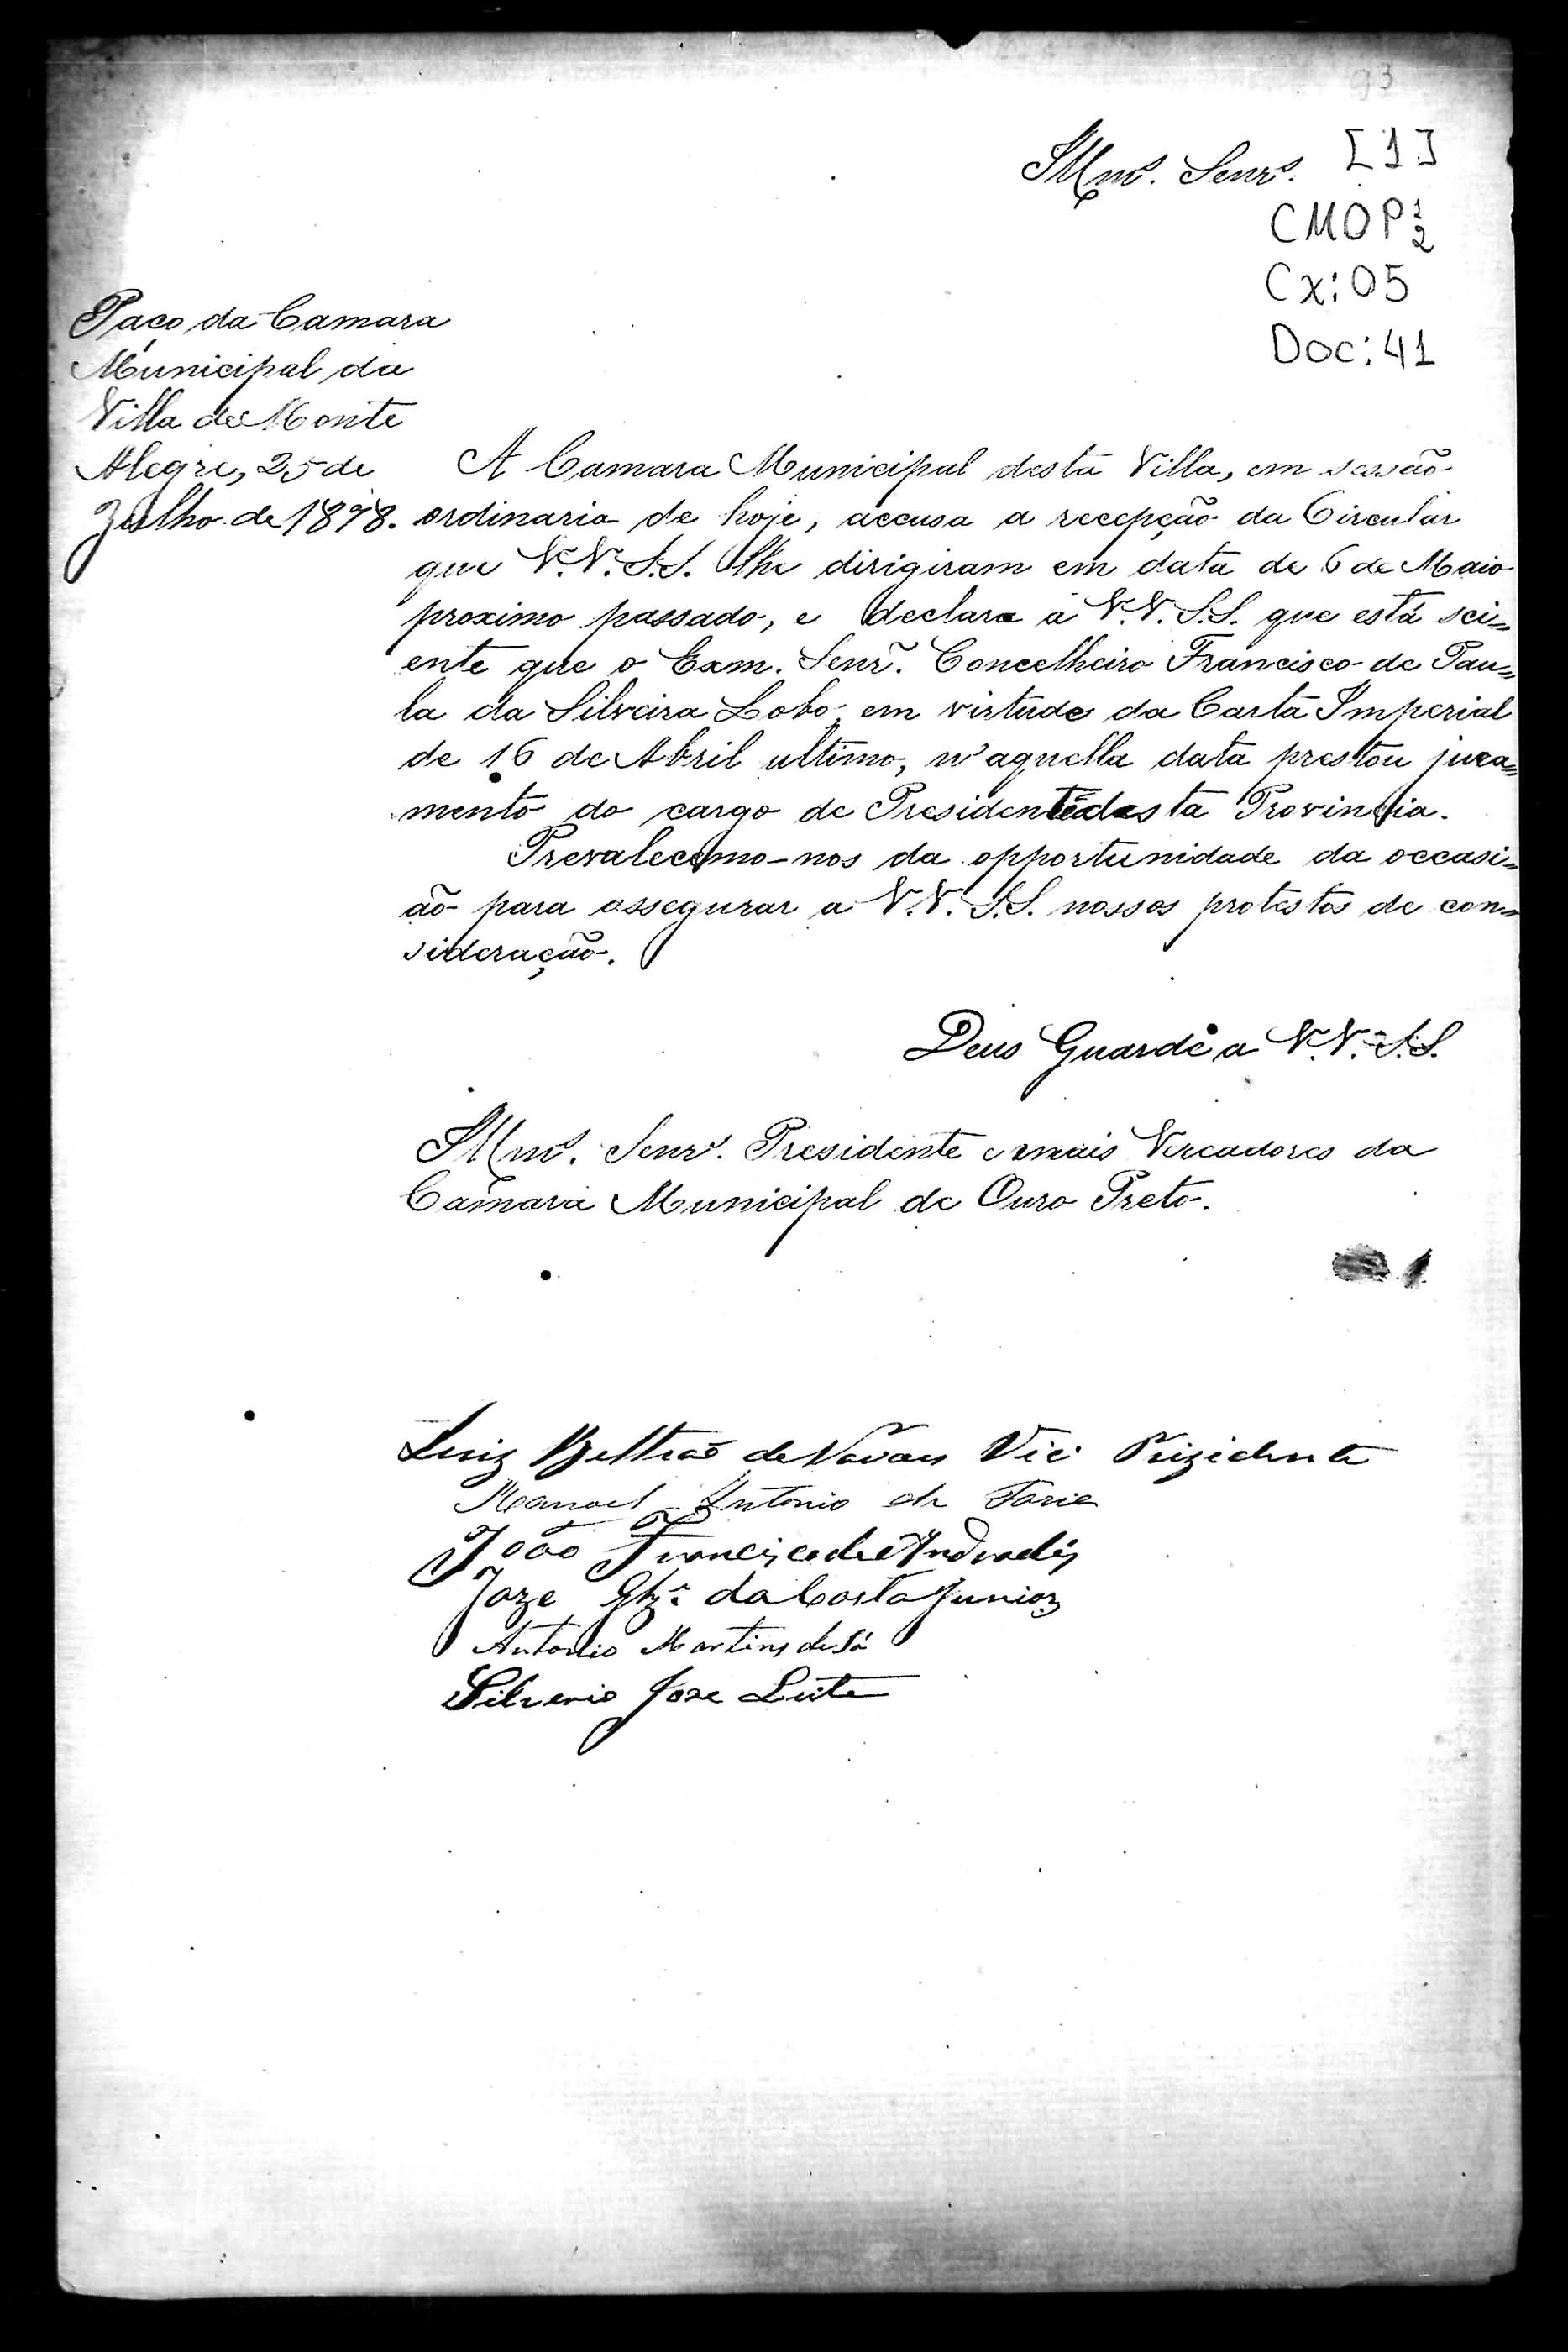 93
Illmos. Senrs.
[1]
CMOP 1/2
Cx: 05
Doc: 41
Paço da Camara
Municipal da
Villa de Monte
Alegre, 25 de
Julho de 1878.
A Camara Municipal desta Villa, em sessão
ordinaria de hoje, accusa a recepção da Circular
que V.V. S.S. lhe dirigiram em data de 6 de Maio
proximo passado, e declara a V.V. S.S. que está sci=
ente que o Exm. Senr. Concelheiro Francisco de Pau=
la da Silveira Lobo, em virtude da Carta Imperial
de 16 de Abril ultimo, n'aquella data prestou jura=
mento do cargo de Presidente desta Provincia.
Prevalecemo-nos da opportunidade da occasi=
ão para assegurar a V.V. S.S. nossos protestos de con=
sideração.
Deus Guarde a V.V. S.S.
Illmos. Senrs. Presidente e mais Vereadores da
Camara Municipal de Ouro Preto.
Luiz Beltrão de Vice Prizidente
Manoel Antonio de Faria
João Francisco de Andrade
Joze Glz. da Costa Junior
Antonio Martins de Sá
Silverio Jose Leite